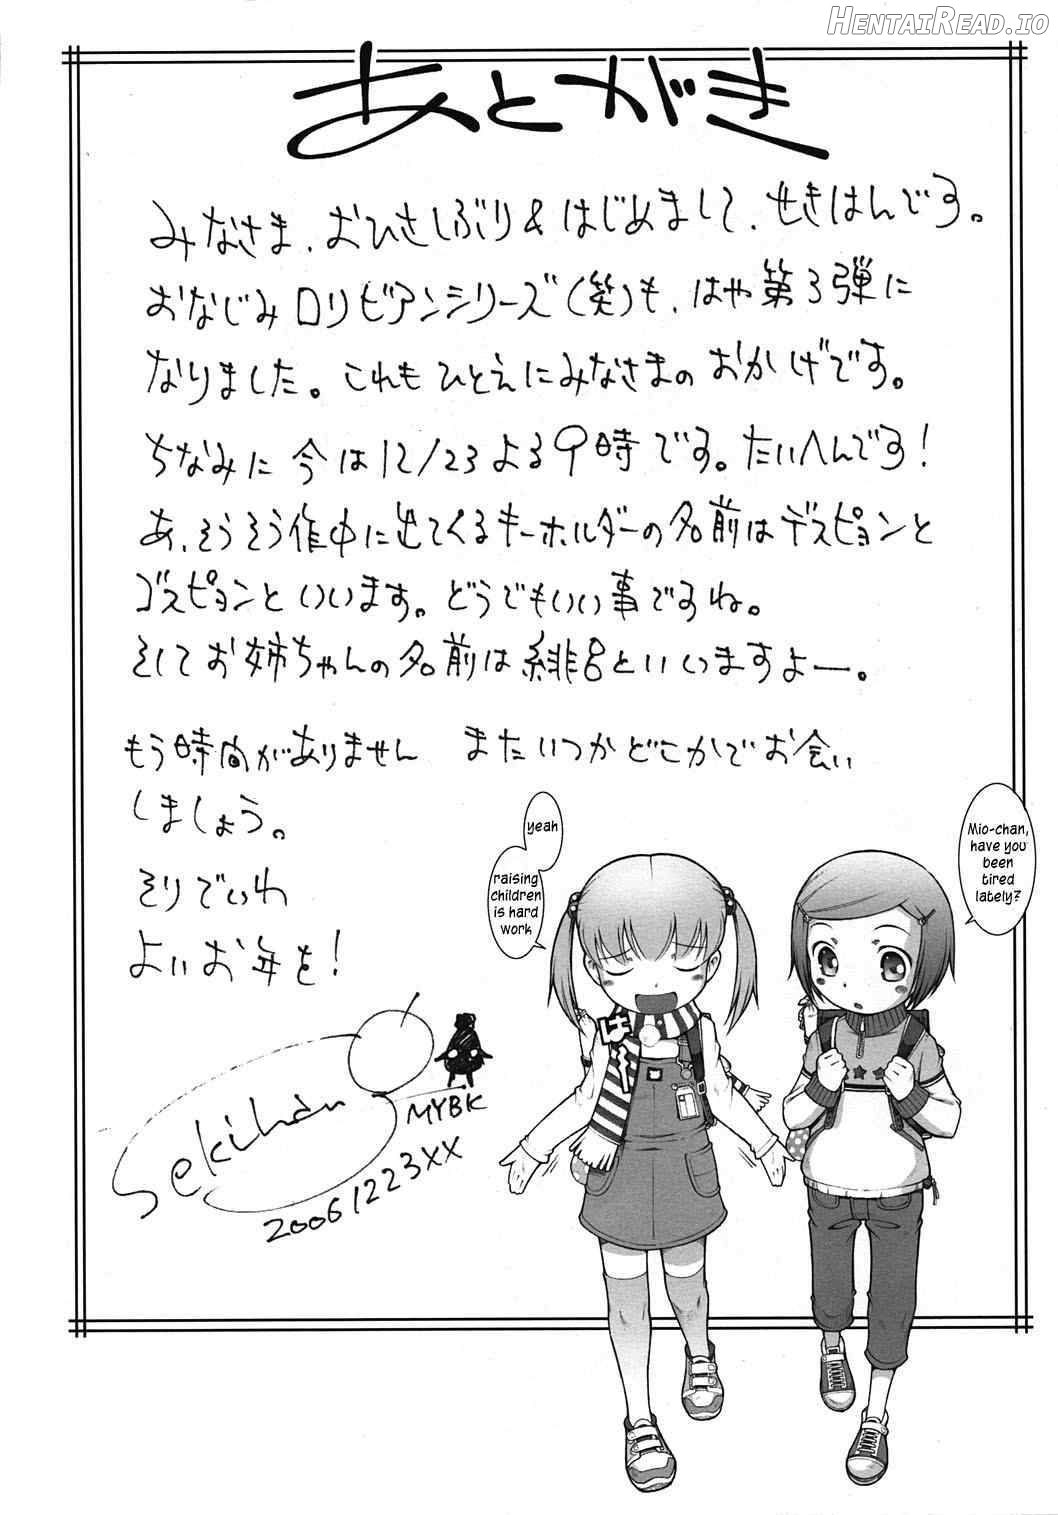 HentaiRead.io
あとがき
みなさま、おひさしぶり&はじめまして、せきはんです。
おなじみロリビアンシリーズ(笑)も、はや第3弾に
なりました。これもひとえにみなさまのおかげです。
ちなみに今は12/23よる9時です。たいへんです!
あ、そうそう作中に出てくるキーホルダーの名前はデスピョンと
ゴスピョンといいます。どうでもいい事ですね。
そしてお姉ちゃんの名前は緋呂といいますよー。
もう時間がありません またいつかどこかでお会い
しましょう。
そりでゎわ
よいお年を!
Mio-chan,
have you
been
tired
lately?
yeah
raising
children
is hard
work
は〜
Sekihan
MYBK
20061223XX